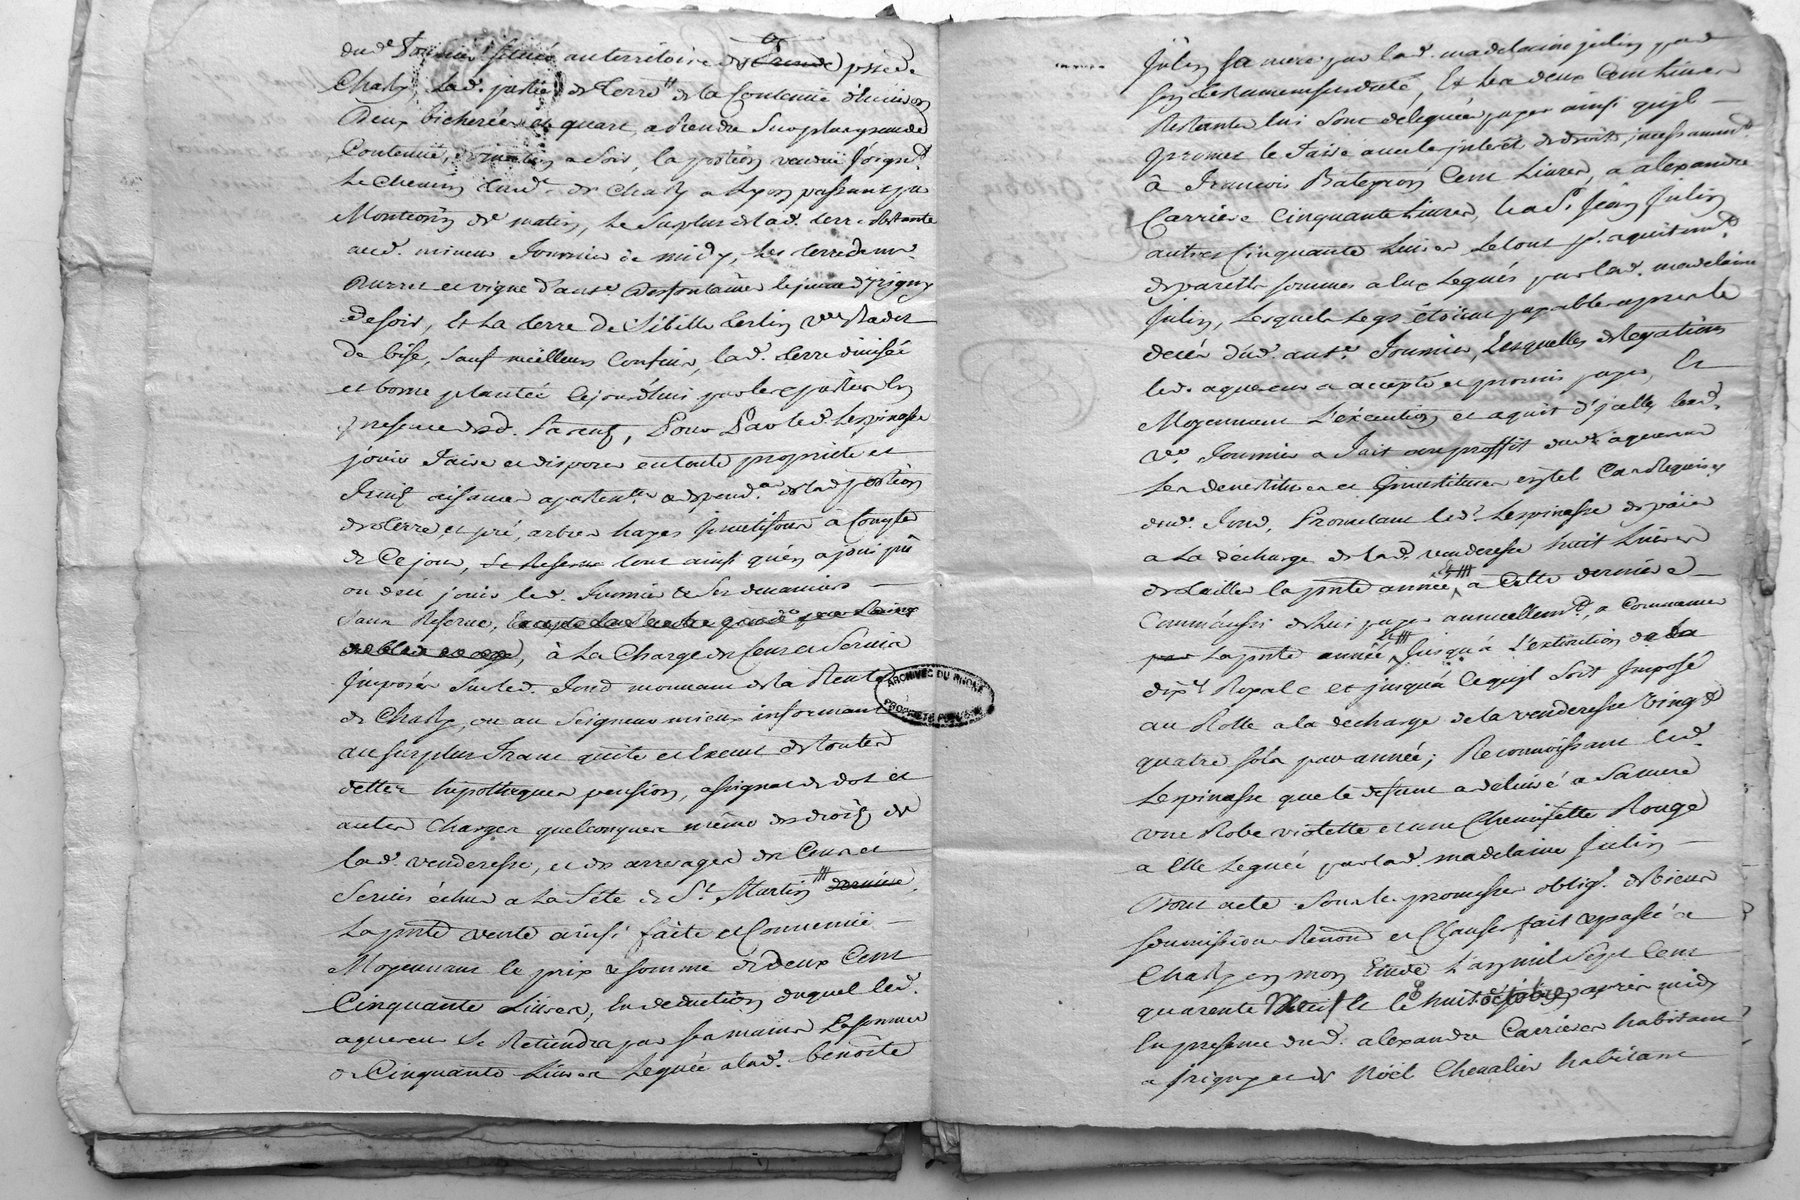 dud. Fournier situé au territoire de psse de
Charly, lad. partie de terre de la Contenue d'environ
Deux bicherées et quart, a prendre Sur plus grande
Contenue, de matin a Soir, la portion vendue Joignt.
Le Chemin tend. de Charly a Lyon passant par
Montcorin de matin, Le Surplus de lad. terre restante
aud. mineur Fournier de midy, les terre de mr.
et vigne d'ant. Desfontaines le jeune d'jrigny
de soir, Et La terre de Sibille Terlin vve
De bise, Sauf meilleurs Confins, lad. terre divisée
et borne plantée Cejourd'hui par les parties En
presence dud. Parent, Pour Par led. Lespinasse
jouir faire et disposer en toute propriété et
fruits aisances apartent. de lad. portion
de terre et pré, arbres hayes Jnvestison à Compter
de Ce jour, Se Reserve tout ainsi qu'en a joui pû
ou dû jouir led. Fournier & Ses devanciers
Sans Reserve,
à La Charge des Cens et Servis
Jmposés Sur led. fond mouvant de la Rente
de Charly, ou au Seigneur mieux informant
au surplus franc quitte et Exemt de toutes
dettes hipotheques pension, assignat de dot et
autres Charges quelconques même des droits de
lad. venderesse, et des arrerages des Cens et
Servis échus a La fête de St. Martin derniere,
La pnte vente ainsi faite et Convenüe
Moyennant le prix & somme de Deux Cent
Cinquante Livres, En deduction duquel led.
aquereur Se Retiendra par ses mains La somme
de Cinquante Livres Leguée a lad. benoite
ARCHIVES DU RHONE
PROPRIÉTÉ PUBLIQUE
Julin sa mère par lad. madelaine julin par
son testament sus daté, Et les deux Cent Livres
Restantes lui sont deleguées payer ainsi qu'jl
promet le faire avec le jnteret de droit, jncessament
à francois Cent Livres, a alexandre
Carrier Cinquante Livres, & a Jean Julin
autres Cinquante Livres Le tout pr. aquitemt.
de pareilles sommes a Eux Legués par lad. madelaine
Julin, Lesquels Legs étoient payables apres le
decès dud. ant. Fournier, Lesquelles delegations
led. aquereur a accepté et promis payer, Et
Moyennant L'exécution et aquit d'jcelles lad.
vve. Fournier a fait au proffit dud. aquereur
Les devestitures et Jnvestitures en tel Cas Requises
dud. fond, Promettant led. Lespinasse de païer
a La decharge de lad. venderesse huit Livres
de tailles la pnte année, a Celle derniere
Commaussi de lui payer annuellemt. a Commencer
La pnte année, Jusqu'à L'extinction de
dixe. Royale et jusqu'a Ce qu'jl soit Jmposé
au Rolle a la decharge de la venderesse Vingt
quatre sols par année; Reconnoissant led.
Lespinasse que le defunt a delivré a Sa mere
une Robe violette et une Chemisette Rouge
a Elle Leguée par lad. madelaine Julin
Dont acte Sous les promesses oblig. de Biens
soumission Renond. et Clauses fait & passé a
Charly en mon Etude L'an mil Sept Cent
quarente Neuf & le huit octobre après midy
En presence dud. alexandre Carrier habitant
a jrigny et de Noël Chevalier habitant